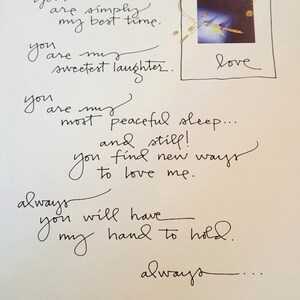 you
are simply
my best time.
love
you
are my
sweetest laughter.
you
are my
most peaceful sleep...
and still!
you find new ways
to love me.
always
you will have
my hand to hold.
always...